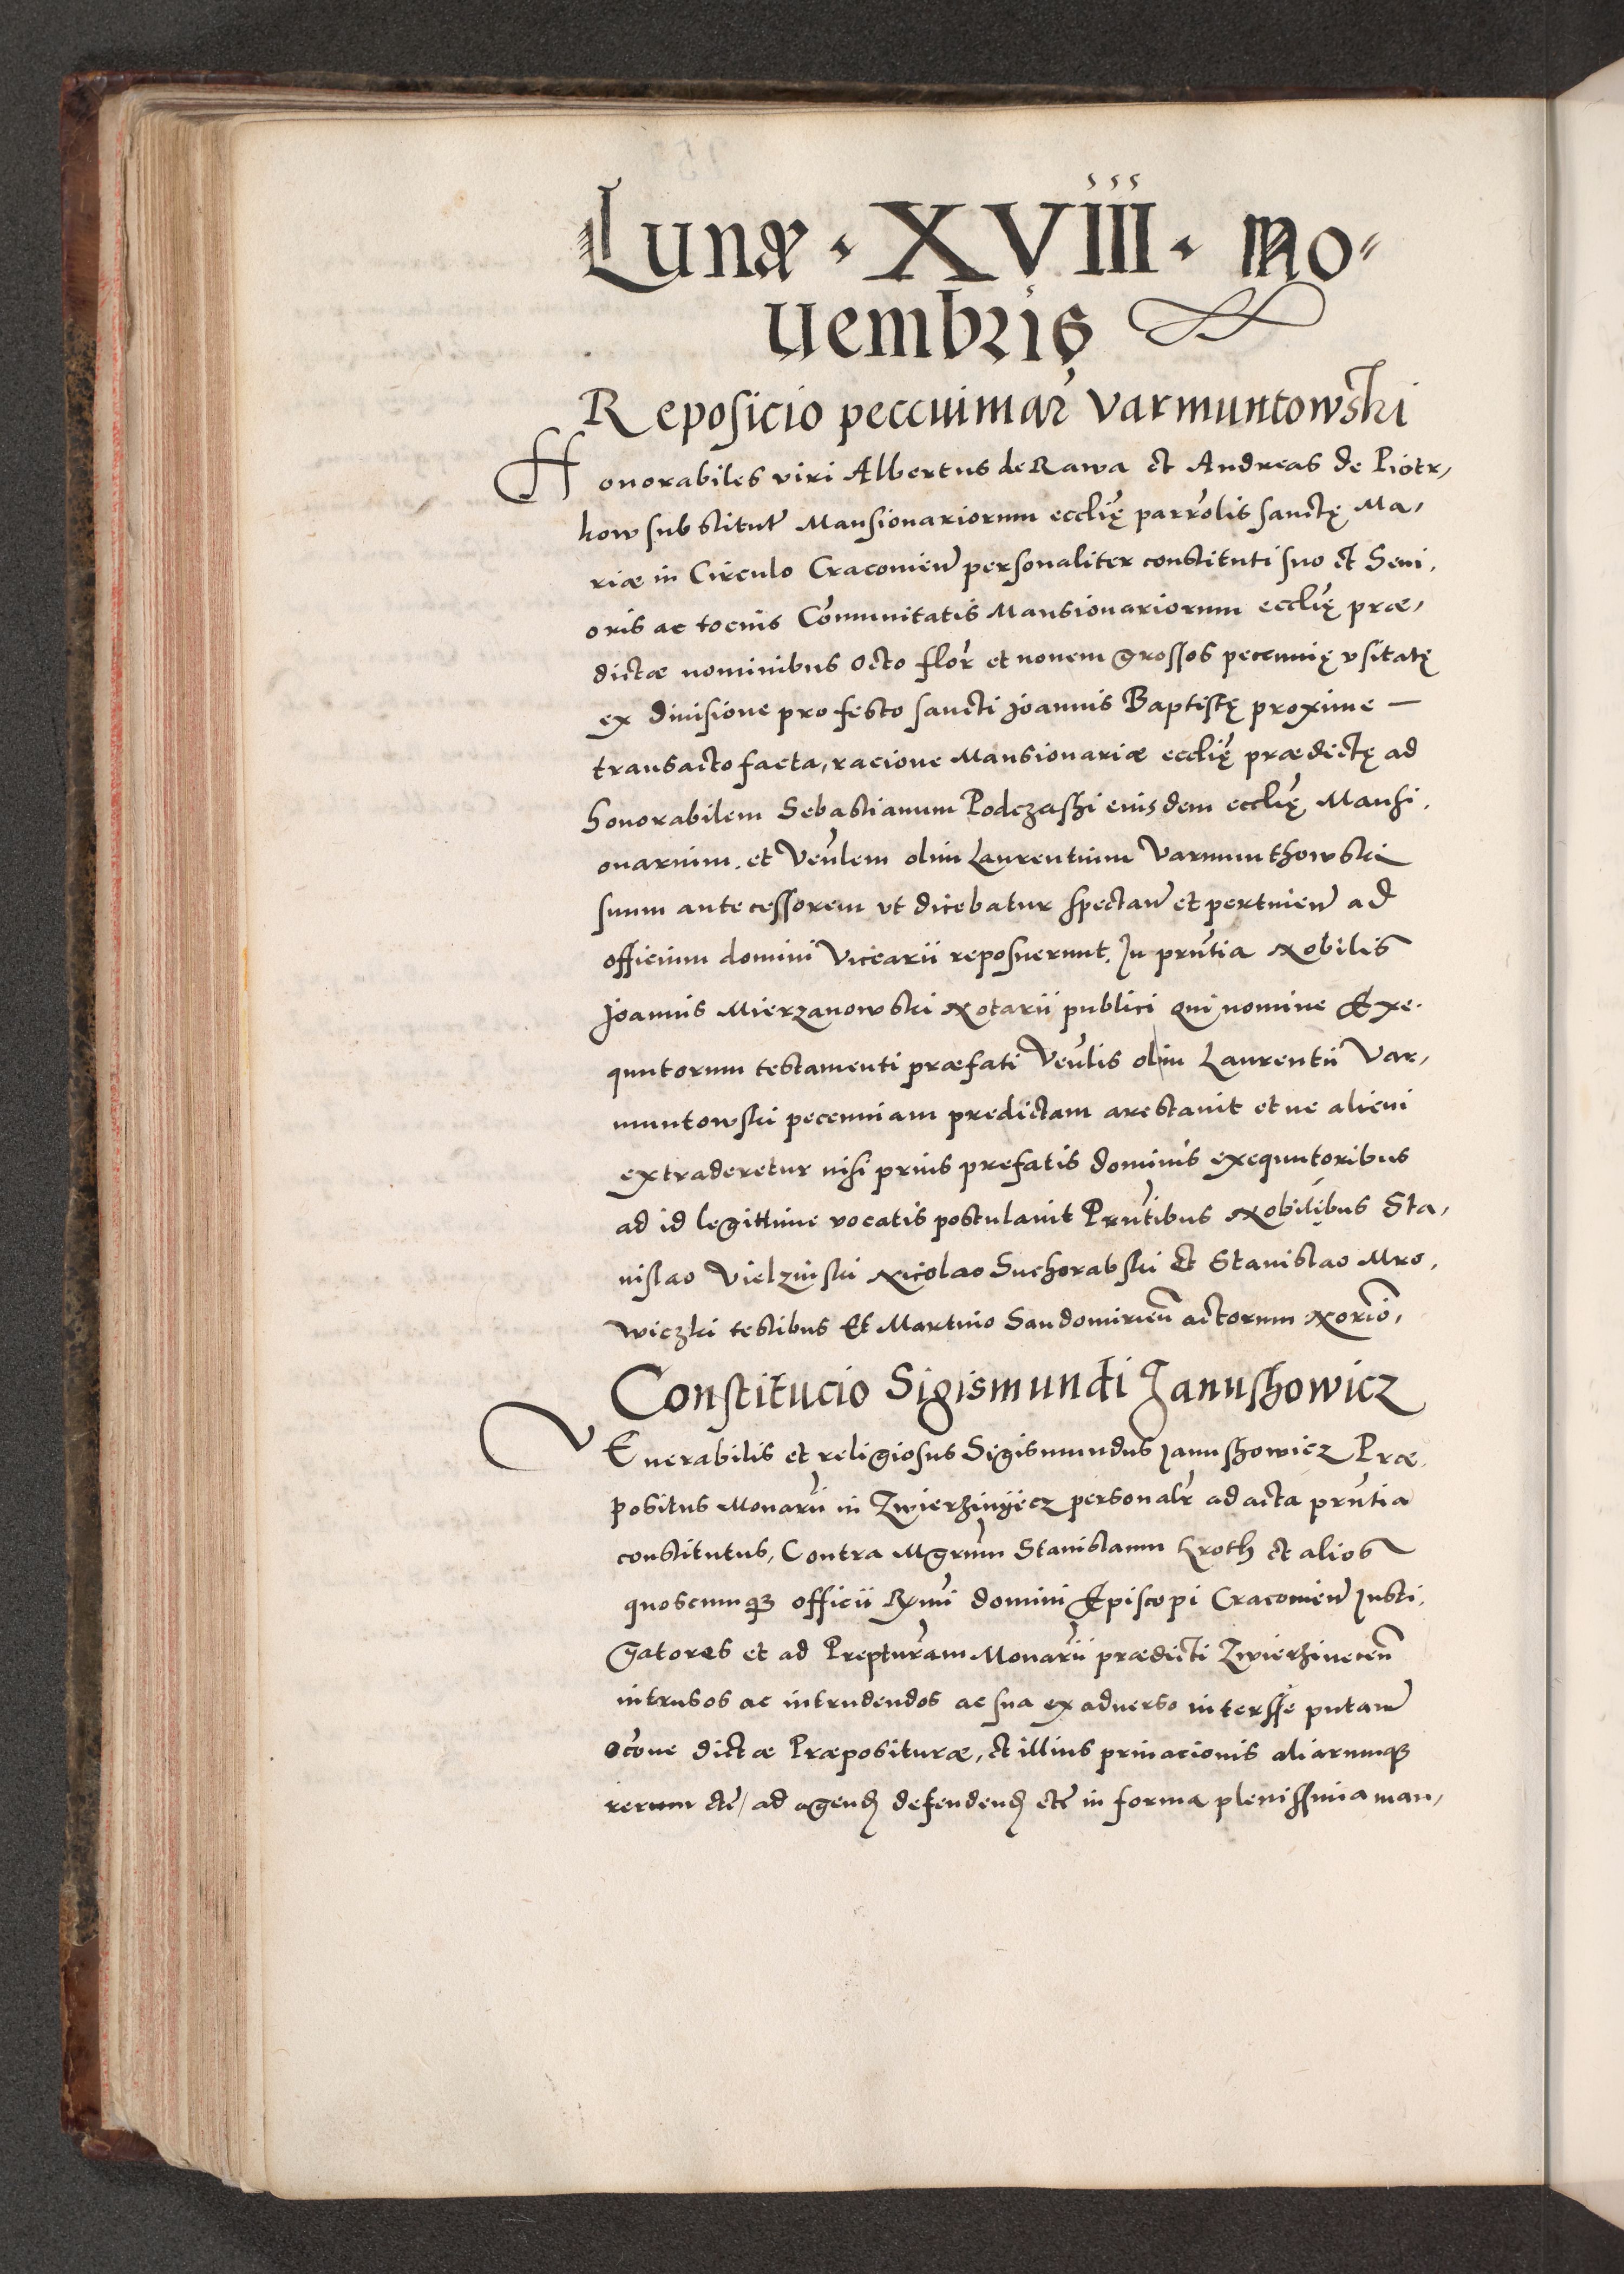 Lunæ · XVIII · No-
uembris
Reposicio peccuniar Varmuntowski
Honorabiles viri Albertus de Rawa et Andreas de Piotr,
kow substituti Mansionariorum ecclię parrolis sanctę Ma,
riæ in Circulo Cracovien personaliter constituti suo et Seni,
oris ac tocius Comunitatis Mansionariorum ecclię præ,
dictæ nominibus octo flor et novem grossos peccunię vsitatę
ex divisione pro festo sancti Joannis Baptistę proxime —
transacto facta, racione Mansionariæ ecclię prædictę ad
honorabilem Sebastianum Podczaski eiusdem ecclię Mansi,
onarium. et Venlem olim Laurentium Varmunthowski
suum antecessorem vt dicebatur spectan et pertinen ad
officium domini Vicearii reposuerunt. In prntia Nobilis
Joannis Mierzanowski Notarii publici qui nomine Exe,
quutorum testamenti præfati Venlis olim Laurentii Var,
muntowski peccuniam predictam arestavit et ne alicui
extraderetur nisi prius prefatis dominis exequutoribus
ad id legittime vocatis postulavit Prntibus Nobilibus Sta,
nislao Vielzinski Nicolao Suchorabski et Stanislao Mro,
wiczki testibus Et Martino Sandomirien actorum Norio,
Constitucio Sigismundi Janushowicz
VEnerabilis et religiosus Sigismundus Janushowicz Præ,
positus Monarii in Zwierzinyecz personalr ad acta prntia
constitutus, Contra Mgrum Stanislaum Kroth et alios
quoscumqȝ officii Rxmi domini Episcopi Cracovien Insti,
gatores et ad Prepturam Monarii prædicti Zwierzinecen
intrusos ac intrudendos ac sua ex adverso interesse putan
Ocone dictæ Præposituræ, et illius privacionis aliarumqȝ
rerum etc / ad agend defendend etc in forma plenissima man,